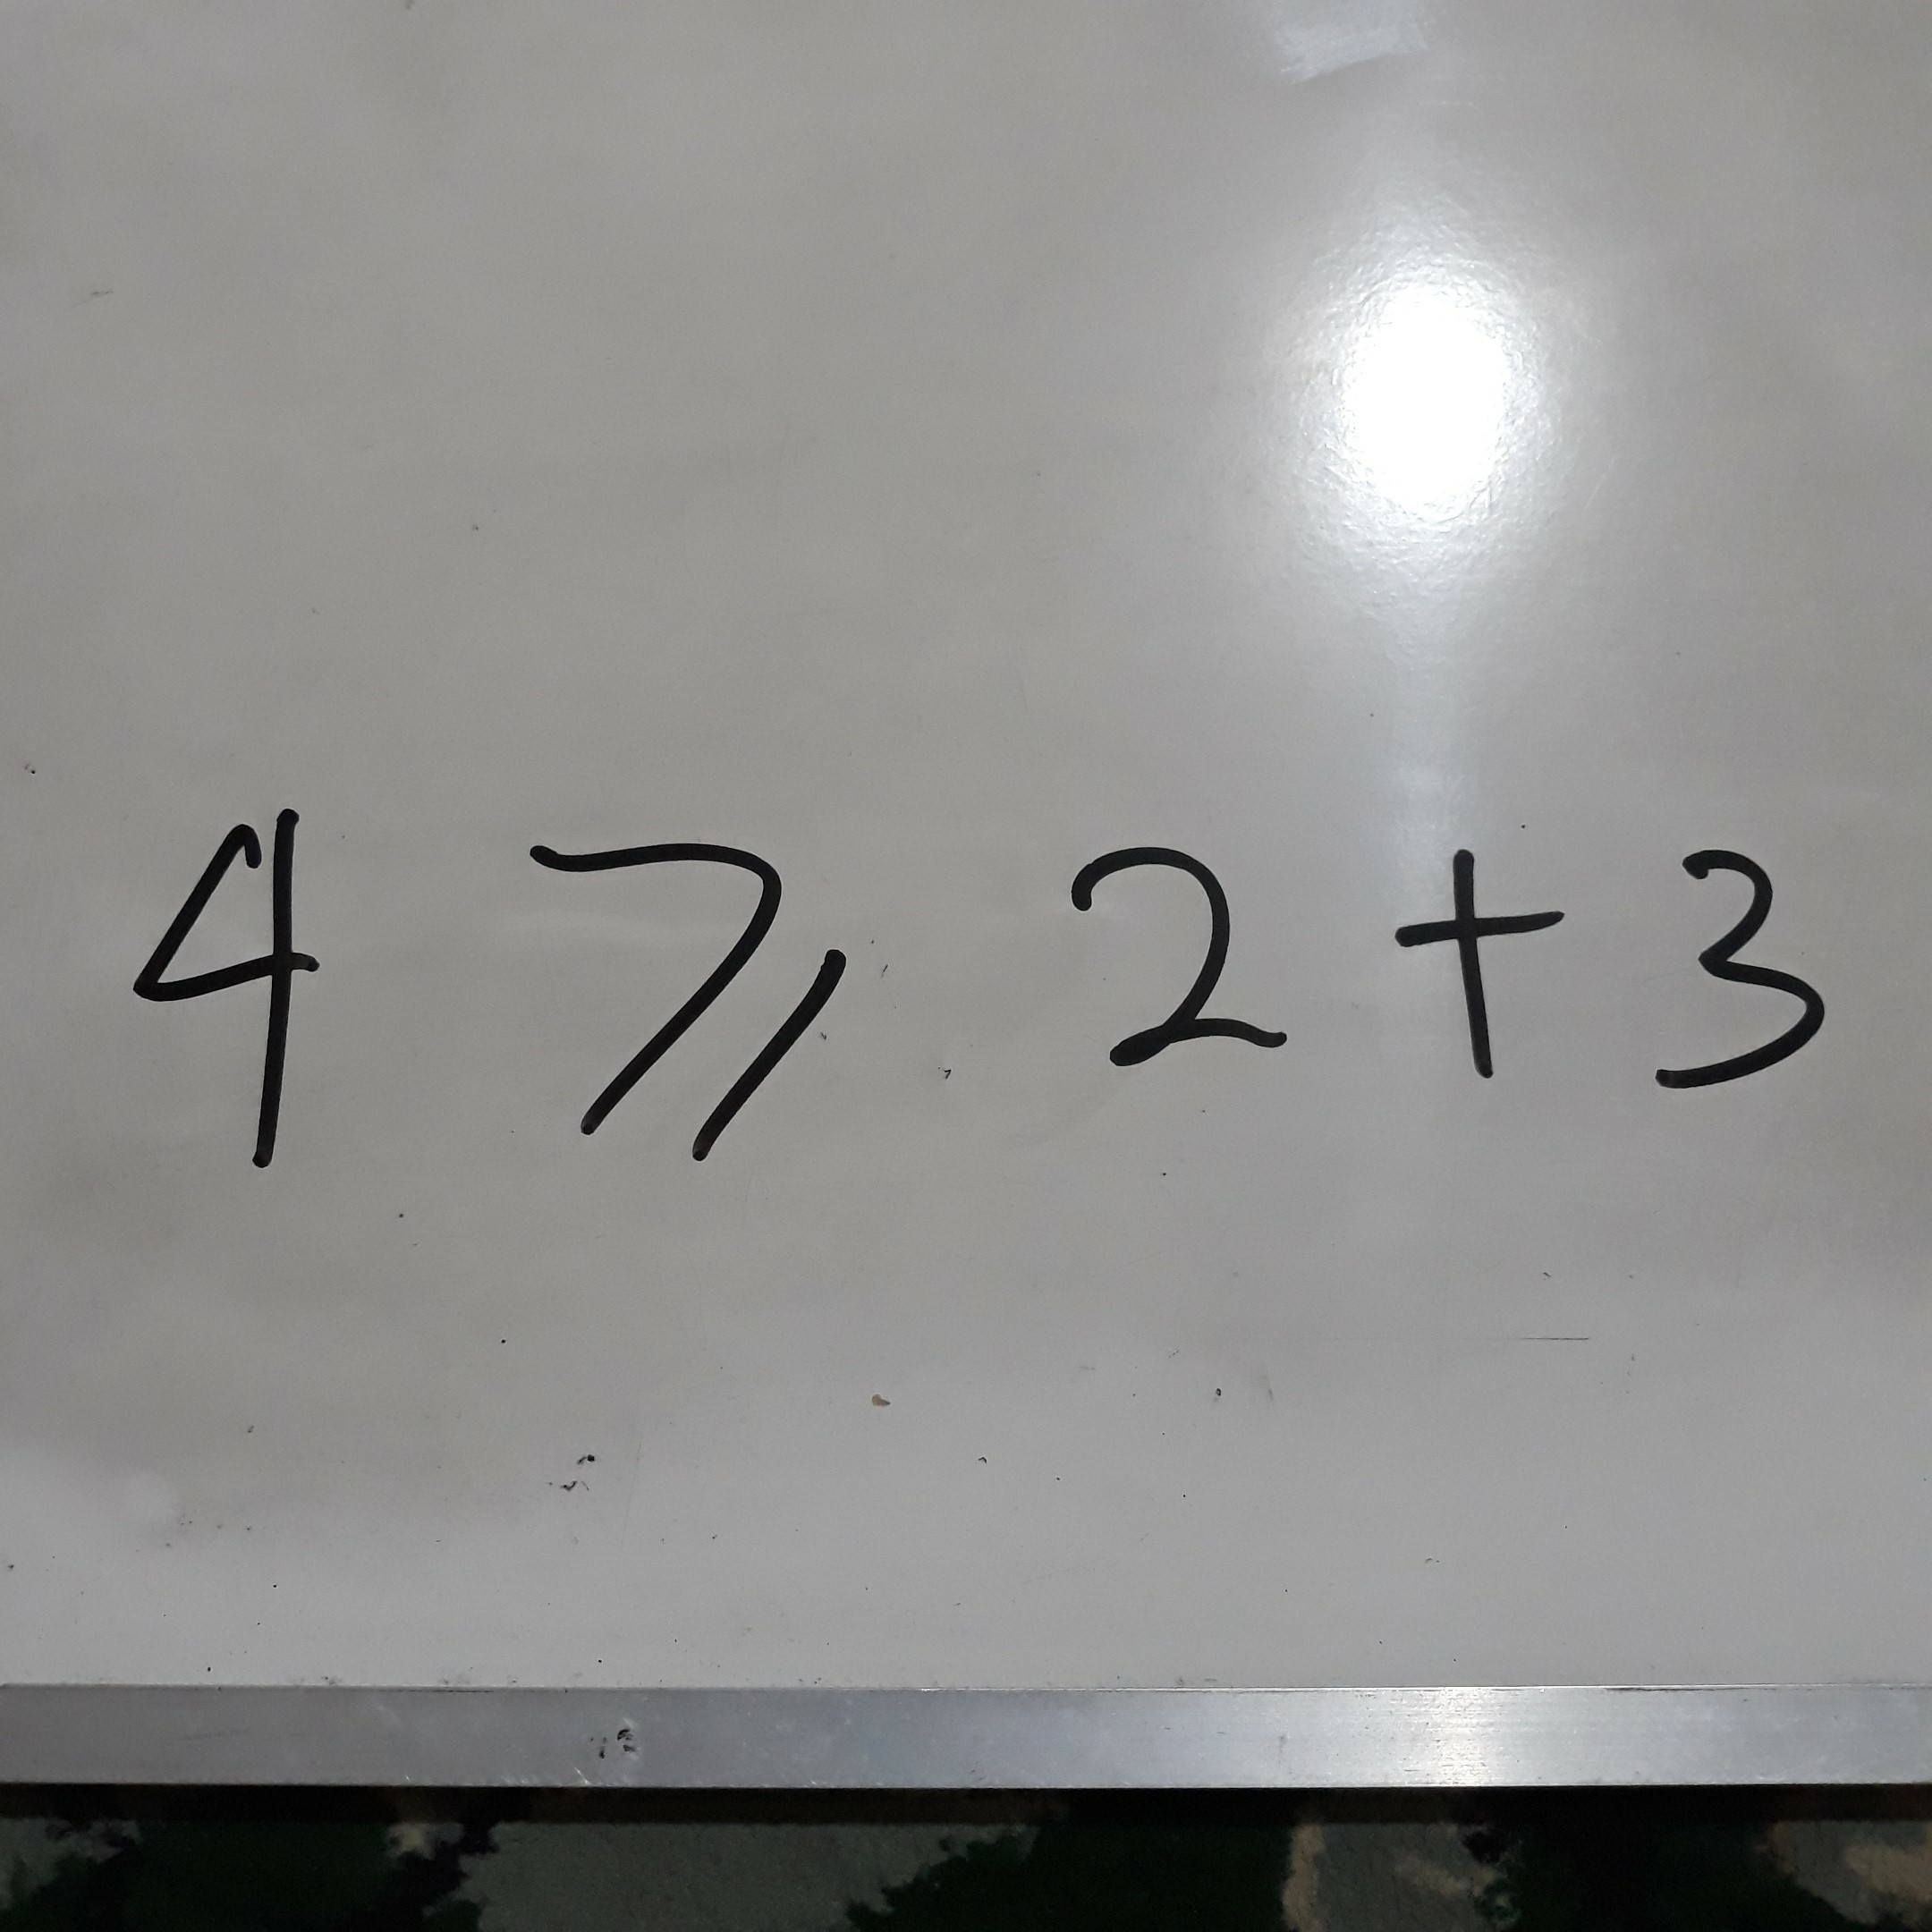 4 ⩾ 2 + 3